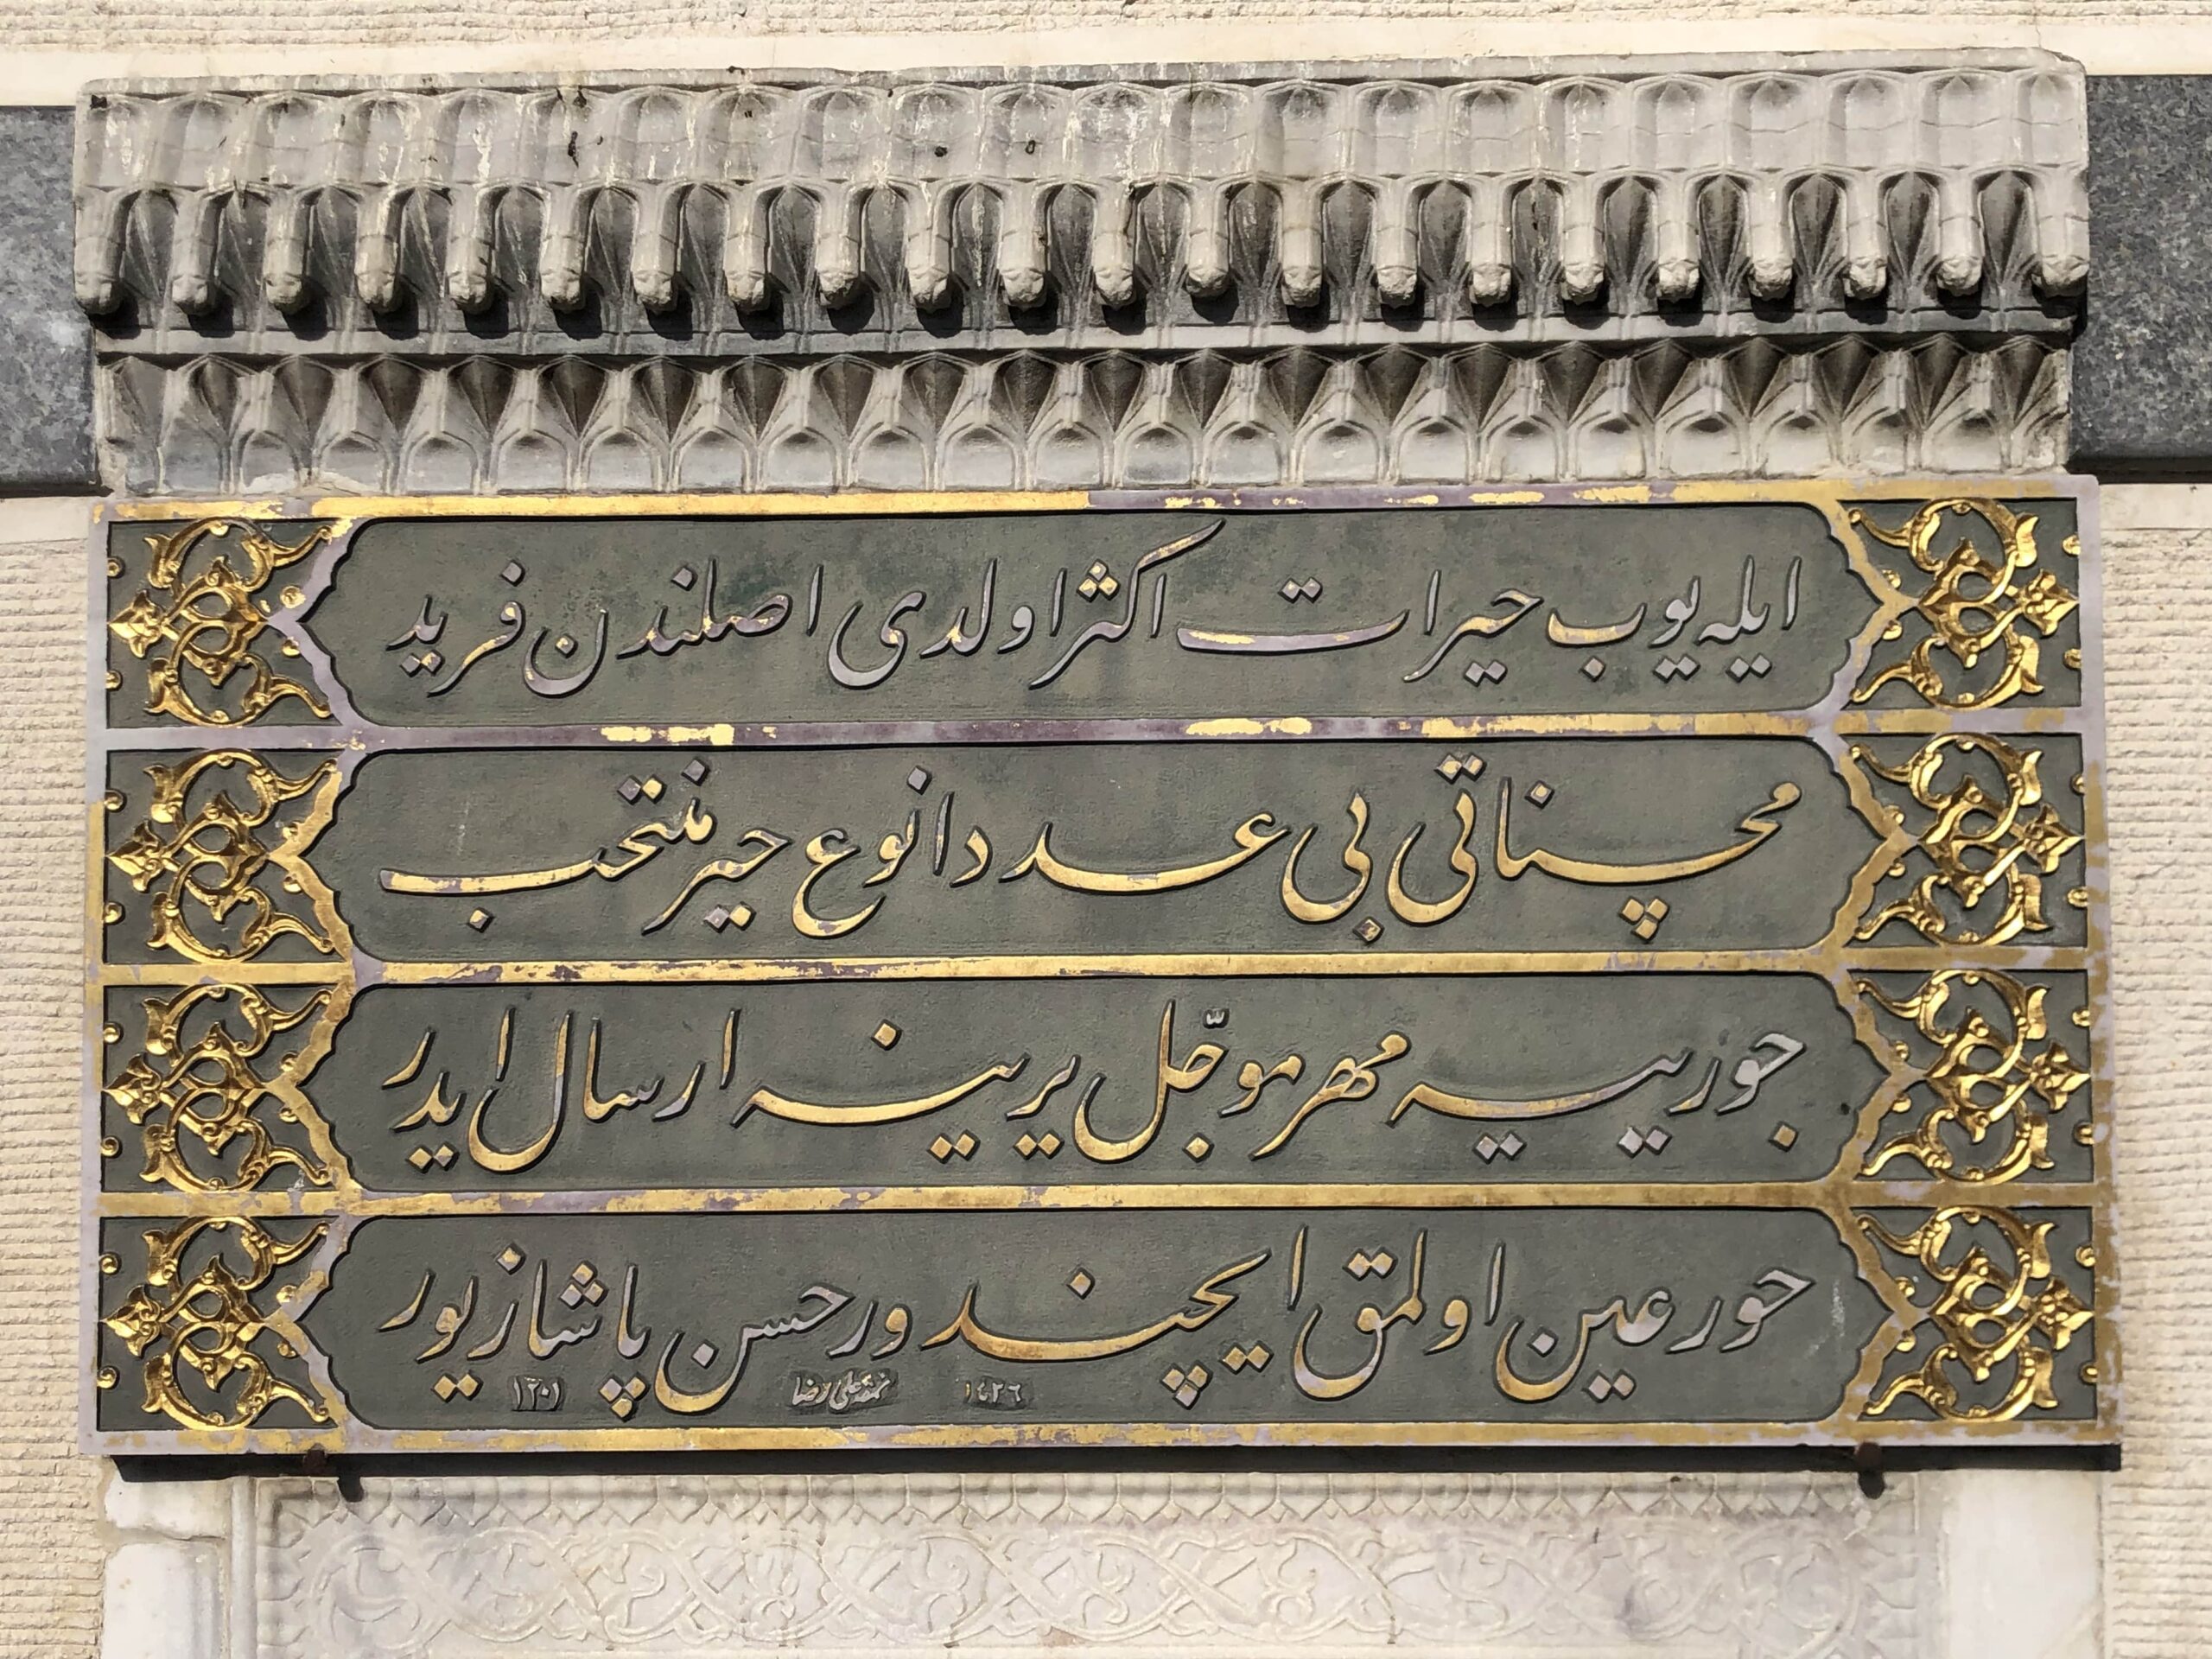 ایله یوب حیرات اکثر اولدی اصلندن فرید
محچناتی بی عدد انوع حیر منتحب
جوریییه مهر موجّل یرینه ارسال ایدر
حور عین اولمق ایچیند ور حسن پاشا زیور
١٤٢٦ نمقه علی رضا ١٣٠١